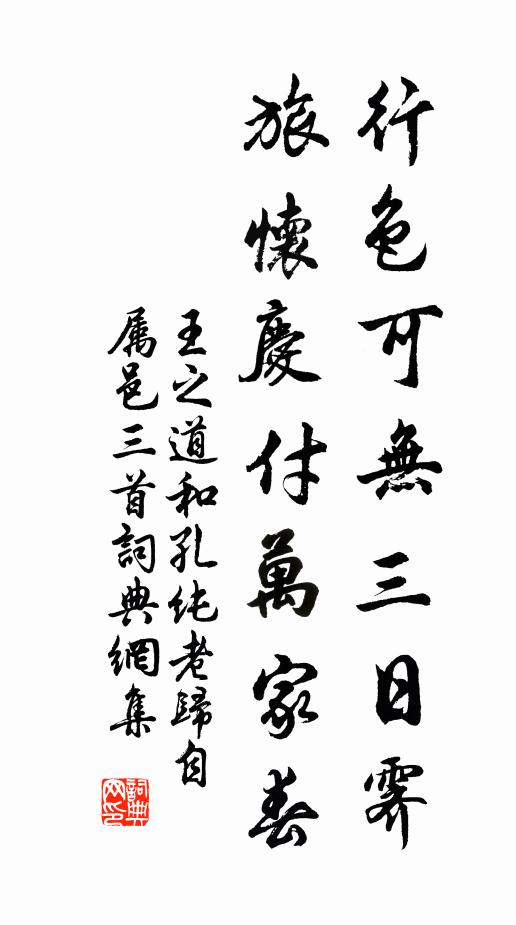 行色可無三日霽
旅懷慶付萬家春
王之道和孔純老歸自
屬邑三首詞典網集
詞典
网印